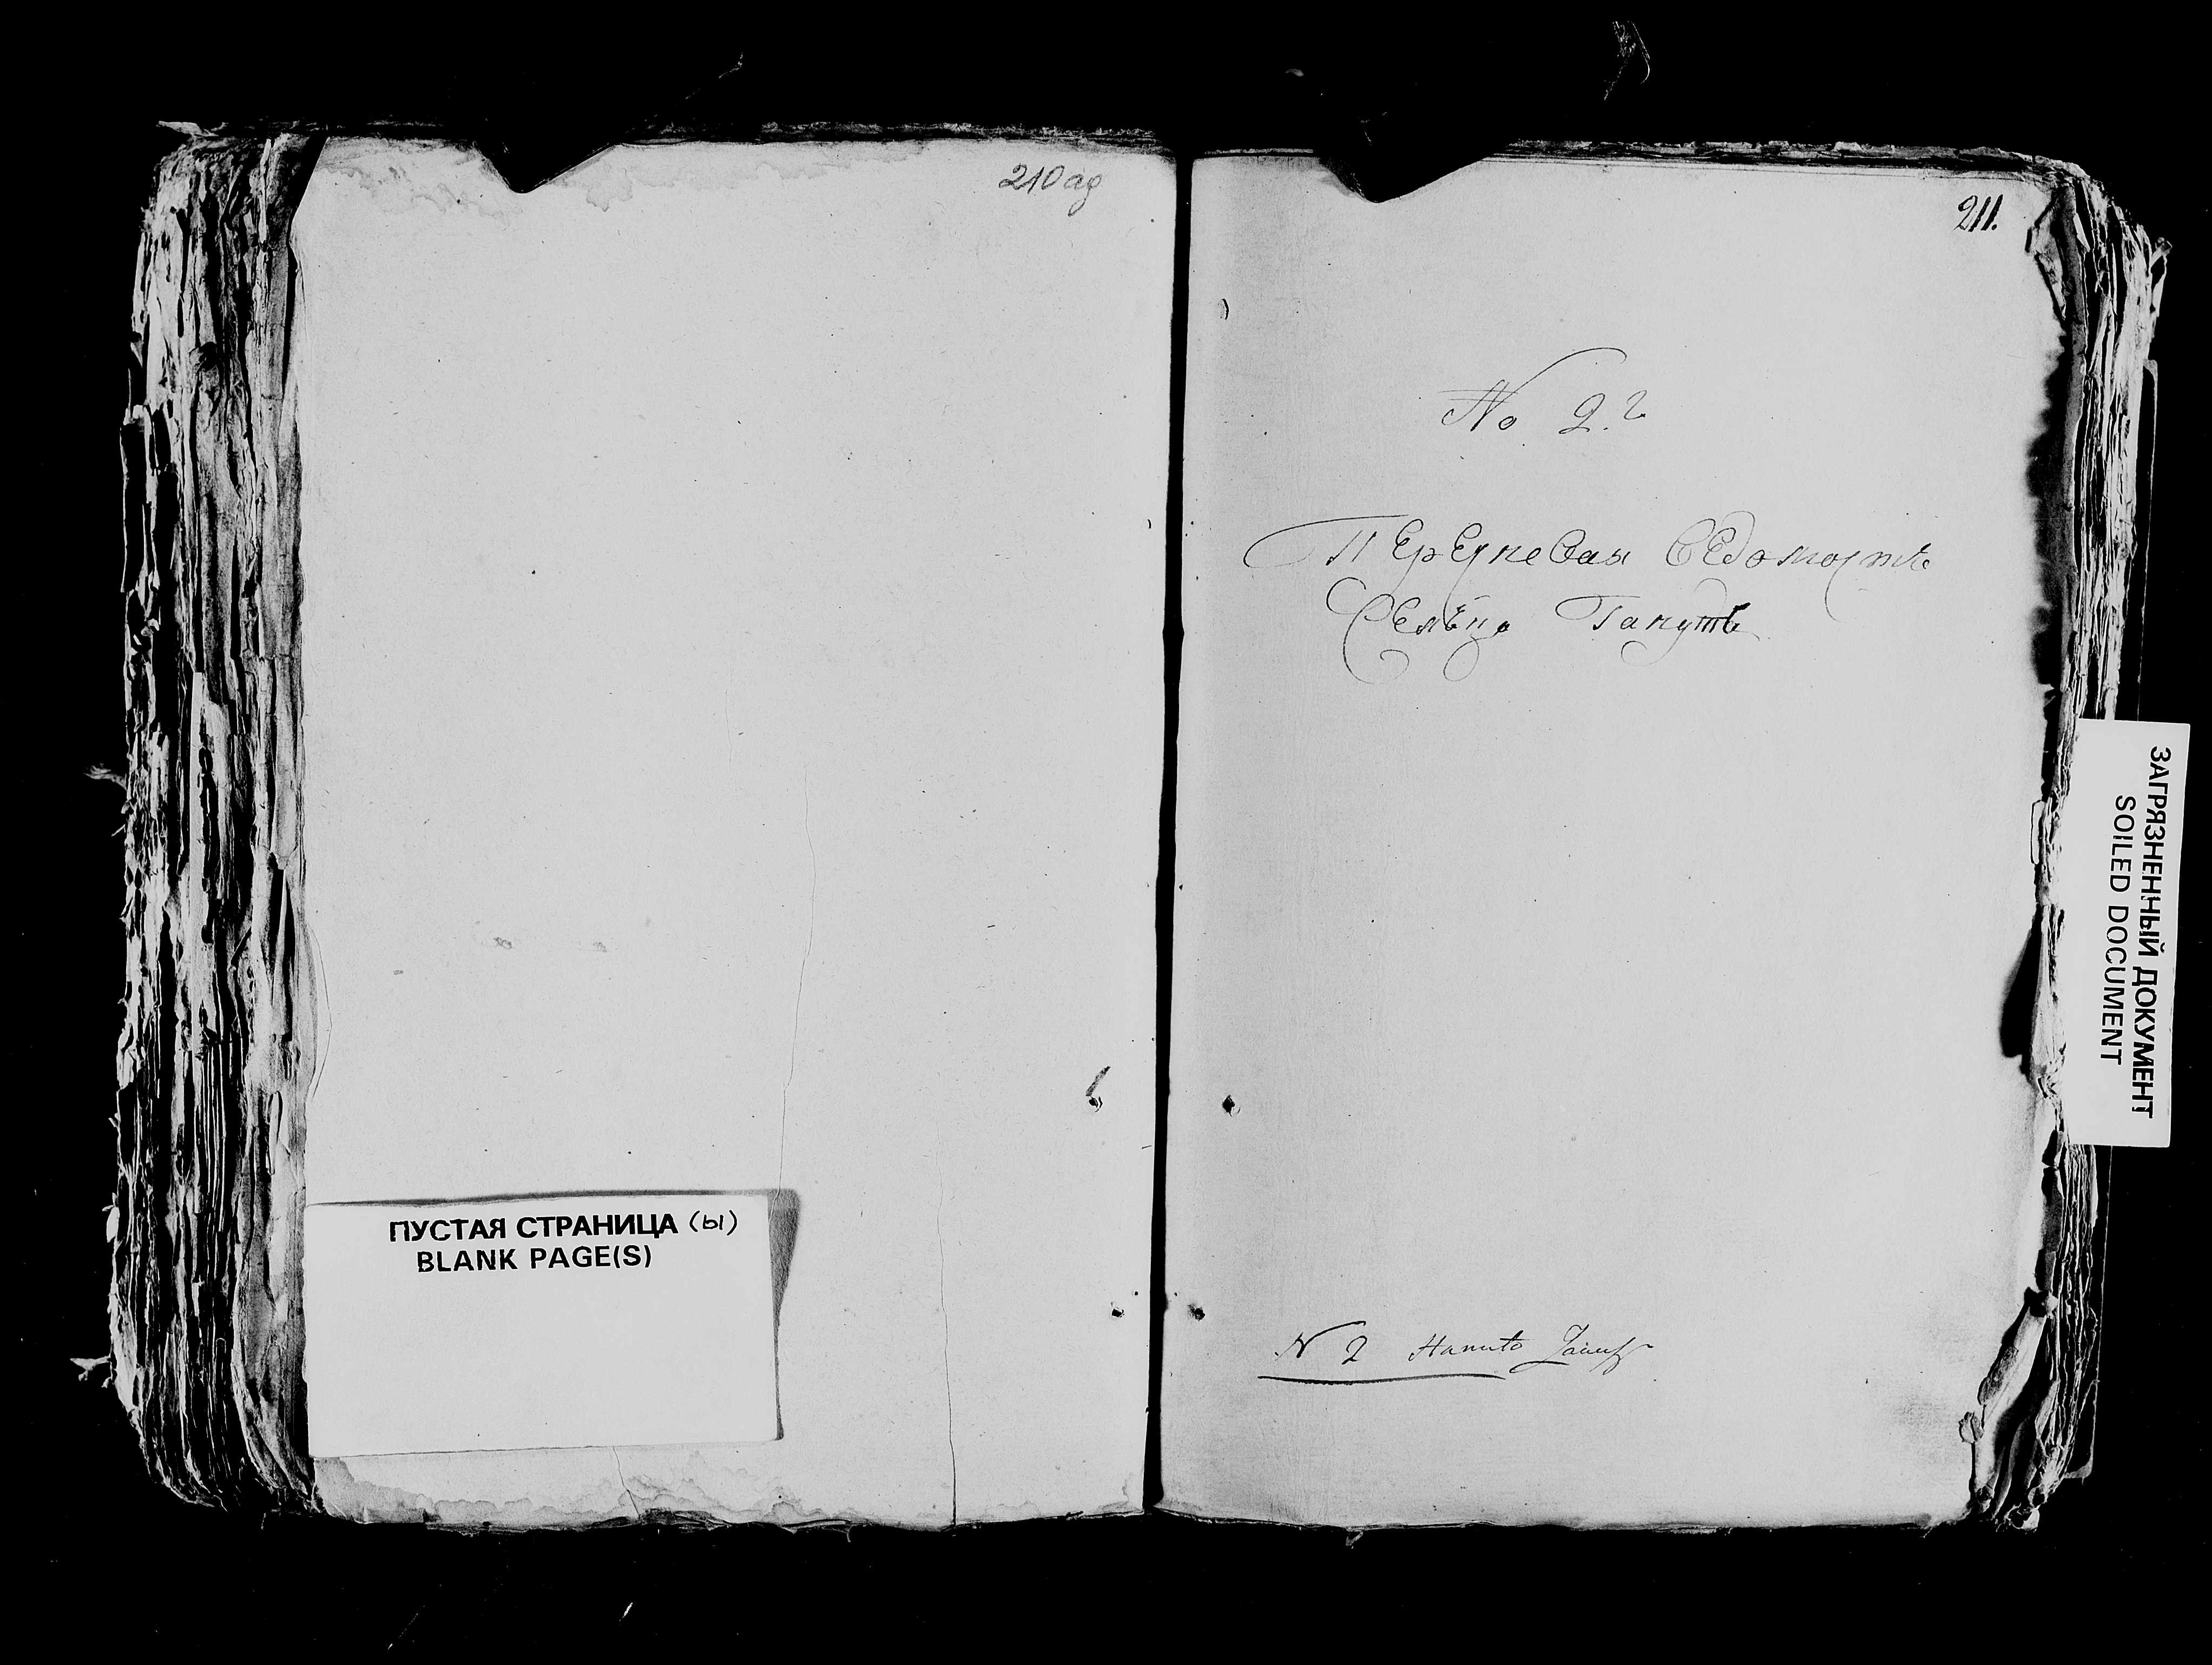 210 ад
ПУСТАЯ СТРАНИЦА (ы)
BLANK PAGE(S)
211.
No 2.
Перечневая Ведомость
Сельца
N 2
ЗАГРЯЗНЕННЫЙ ДОКУМЕНТ
SOILED DOCUMENT